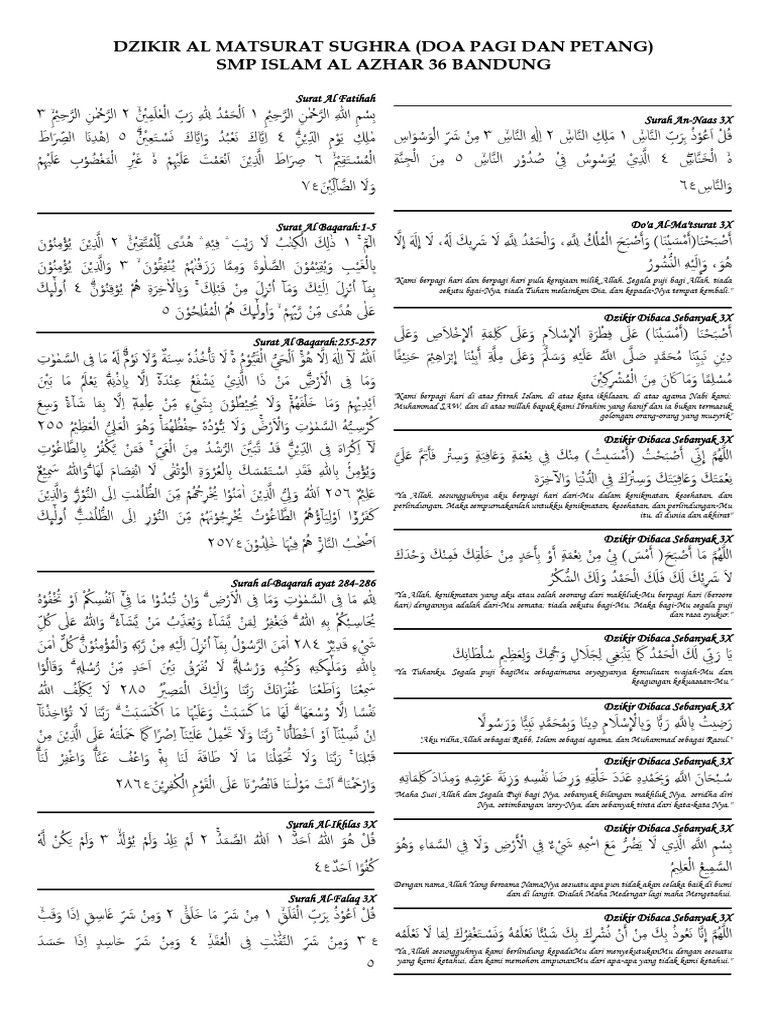 DZIKIR AL MATSURAT SUGHRA (DOA PAGI DAN PETANG)
SMP ISLAM AL AZHAR 36 BANDUNG
Surat Al Fatihah
بِسْمِ اللّٰهِ الرَّحْمٰنِ الرَّحِيْمِ ١ اَلْحَمْدُ لِلّٰهِ رَبِّ الْعٰلَمِيْنَۙ ٢ الرَّحْمٰنِ الرَّحِيْمِۙ ٣
مٰلِكِ يَوْمِ الدِّيْنِۗ ٤ اِيَّاكَ نَعْبُدُ وَاِيَّاكَ نَسْتَعِيْنُۗ ٥ اِهْدِنَا الصِّرَاطَ
الْمُسْتَقِيْمَۙ ٦ صِرَاطَ الَّذِيْنَ اَنْعَمْتَ عَلَيْهِمْ ەۙ غَيْرِ الْمَغْضُوْبِ عَلَيْهِمْ
وَلَا الضَّاۤلِّيْنَ ࣖ ٧
Surat Al Baqarah:1-5
الۤمّۤۚ ١ ذٰلِكَ الْكِتٰبُ لَا رَيْبَۛ فِيْهِۛ هُدًى لِّلْمُتَّقِيْنَۙ ٢ الَّذِيْنَ يُؤْمِنُوْنَ
بِالْغَيْبِ وَيُقِيْمُوْنَ الصَّلٰوةَ وَمِمَّا رَزَقْنٰهُمْ يُنْفِقُوْنَۙ ٣ وَالَّذِيْنَ يُؤْمِنُوْنَ
بِمَآ اُنْزِلَ اِلَيْكَ وَمَآ اُنْزِلَ مِنْ قَبْلِكَۚ وَبِالْاٰخِرَةِ هُمْ يُوْقِنُوْنَۗ ٤ اُولٰۤىِٕكَ
عَلٰى هُدًى مِّنْ رَّبِّهِمْۙ وَاُولٰۤىِٕكَ هُمُ الْمُفْلِحُوْنَ ٥
Surat Al Baqarah:255-257
اَللّٰهُ لَآ اِلٰهَ اِلَّا هُوَۚ اَلْحَيُّ الْقَيُّوْمُ ەۚ لَا تَأْخُذُهٗ سِنَةٌ وَّلَا نَوْمٌۗ لَهٗ مَا فِى السَّمٰوٰتِ
وَمَا فِى الْاَرْضِۗ مَنْ ذَا الَّذِيْ يَشْفَعُ عِنْدَهٗٓ اِلَّا بِاِذْنِهٖۗ يَعْلَمُ مَا بَيْنَ
اَيْدِيْهِمْ وَمَا خَلْفَهُمْۚ وَلَا يُحِيْطُوْنَ بِشَيْءٍ مِّنْ عِلْمِهٖٓ اِلَّا بِمَا شَاۤءَۚ وَسِعَ
كُرْسِيُّهُ السَّمٰوٰتِ وَالْاَرْضَۚ وَلَا يَـُٔوْدُهٗ حِفْظُهُمَاۚ وَهُوَ الْعَلِيُّ الْعَظِيْمُ ٢٥٥
لَآ اِكْرَاهَ فِى الدِّيْنِۗ قَدْ تَّبَيَّنَ الرُّشْدُ مِنَ الْغَيِّۚ فَمَنْ يَّكْفُرْ بِالطَّاغُوْتِ
وَيُؤْمِنْۢ بِاللّٰهِ فَقَدِ اسْتَمْسَكَ بِالْعُرْوَةِ الْوُثْقٰى لَا انْفِصَامَ لَهَاۗ وَاللّٰهُ سَمِيْعٌ
عَلِيْمٌ ٢٥٦ اَللّٰهُ وَلِيُّ الَّذِيْنَ اٰمَنُوْا يُخْرِجُهُمْ مِّنَ الظُّلُمٰتِ اِلَى النُّوْرِۗ وَالَّذِيْنَ
كَفَرُوْٓا اَوْلِيَاۤؤُهُمُ الطَّاغُوْتُ يُخْرِجُوْنَهُمْ مِّنَ النُّوْرِ اِلَى الظُّلُمٰتِۗ اُولٰۤىِٕكَ
اَصْحٰبُ النَّارِۚ هُمْ فِيْهَا خٰلِدُوْنَ ࣖ ٢٥٧
Surah al-Baqarah ayat 284-286
لِلّٰهِ مَا فِى السَّمٰوٰتِ وَمَا فِى الْاَرْضِۗ وَاِنْ تُبْدُوْا مَا فِيْٓ اَنْفُسِكُمْ اَوْ تُخْفُوْهُ
يُحَاسِبْكُمْ بِهِ اللّٰهُۗ فَيَغْفِرُ لِمَنْ يَّشَاۤءُ وَيُعَذِّبُ مَنْ يَّشَاۤءُۗ وَاللّٰهُ عَلٰى كُلِّ
شَيْءٍ قَدِيْرٌ ٢٨٤ اٰمَنَ الرَّسُوْلُ بِمَآ اُنْزِلَ اِلَيْهِ مِنْ رَّبِّهٖ وَالْمُؤْمِنُوْنَۗ كُلٌّ اٰمَنَ
بِاللّٰهِ وَمَلٰۤىِٕكَتِهٖ وَكُتُبِهٖ وَرُسُلِهٖۗ لَا نُفَرِّقُ بَيْنَ اَحَدٍ مِّنْ رُّسُلِهٖۗ وَقَالُوْا
سَمِعْنَا وَاَطَعْنَا غُفْرَانَكَ رَبَّنَا وَاِلَيْكَ الْمَصِيْرُ ٢٨٥ لَا يُكَلِّفُ اللّٰهُ
نَفْسًا اِلَّا وُسْعَهَاۗ لَهَا مَا كَسَبَتْ وَعَلَيْهَا مَا اكْتَسَبَتْۗ رَبَّنَا لَا تُؤَاخِذْنَآ
اِنْ نَّسِيْنَآ اَوْ اَخْطَأْنَاۚ رَبَّنَا وَلَا تَحْمِلْ عَلَيْنَآ اِصْرًا كَمَا حَمَلْتَهٗ عَلَى الَّذِيْنَ مِنْ
قَبْلِنَاۚ رَبَّنَا وَلَا تُحَمِّلْنَا مَا لَا طَاقَةَ لَنَا بِهٖۚ وَاعْفُ عَنَّاۗ وَاغْفِرْ لَنَاۗ
وَارْحَمْنَاۗ اَنْتَ مَوْلٰىنَا فَانْصُرْنَا عَلَى الْقَوْمِ الْكٰفِرِيْنَ ࣖ ٢٨٦
Surah Al-Ikhlas 3X
قُلْ هُوَ اللّٰهُ اَحَدٌۚ ١ اَللّٰهُ الصَّمَدُۚ ٢ لَمْ يَلِدْ وَلَمْ يُوْلَدْۙ ٣ وَلَمْ يَكُنْ لَّهٗ
كُفُوًا اَحَدٌ ࣖ ٤
Surah Al-Falaq 3X
قُلْ اَعُوْذُ بِرَبِّ الْفَلَقِۙ ١ مِنْ شَرِّ مَا خَلَقَۙ ٢ وَمِنْ شَرِّ غَاسِقٍ اِذَا وَقَبَۙ
٣ وَمِنْ شَرِّ النَّفّٰثٰتِ فِى الْعُقَدِۙ ٤ وَمِنْ شَرِّ حَاسِدٍ اِذَا حَسَدَ ࣖ
٥
Surah An-Naas 3X
قُلْ اَعُوْذُ بِرَبِّ النَّاسِۙ ١ مَلِكِ النَّاسِۙ ٢ اِلٰهِ النَّاسِۙ ٣ مِنْ شَرِّ الْوَسْوَاسِ
ەۙ الْخَنَّاسِۖ ٤ الَّذِيْ يُوَسْوِسُ فِيْ صُدُوْرِ النَّاسِۙ ٥ مِنَ الْجِنَّةِ
وَالنَّاسِ ࣖ ٦
Do'a Al-Ma'tsurat 3X
أَصْبَحْنَا(أَمْسَيْنَا) وَأَصْبَحَ الْمُلْكُ لِلَّهِ، وَالْحَمْدُ لِلَّهِ لَا شَرِيكَ لَهُ، لَا إِلَهَ إِلَّا
هُوَ، وَإِلَيْهِ النُّشُورُ
"Kami berpagi hari dan berpagi hari pula kerajaan milik Allah. Segala puji bagi Allah, tiada
sekutu bgai-Nya, tiada Tuhan melainkan Dia, dan kepada-Nya tempat kembali."
Dzikir Dibaca Sebanyak 3X
أَصْبَحْنَا (أَمْسَيْنَا) عَلَى فِطْرَةِ الْإِسْلَامِ وَعَلَى كَلِمَةِ الْإِخْلَاصِ وَعَلَى
دِيْنِ نَبِيِّنَا مُحَمَّدٍ صَلَّى اللَّهُ عَلَيْهِ وَسَلَّمَ وَعَلَى مِلَّةِ أَبِيْنَا إِبْرَاهِيْمَ حَنِيْفًا
مُسْلِمًا وَمَا كَانَ مِنَ الْمُشْرِكِيْنَ
"Kami berpagi hari di atas fitrah Islam, di atas kata ikhlasan, di atas agama Nabi kami;
Muhammad SAW, dan di atas millah bapak kami Ibrahim yang hanif dan ia bukan termasuk
golongan orang-orang yang musyrik"
Dzikir Dibaca Sebanyak 3X
اللَّهُمَّ إِنِّي أَصْبَحْتُ (أَمْسَيْتُ) مِنْكَ فِي نِعْمَةٍ وَعَافِيَةٍ وَسِتْرٍ فَأَتِمَّ عَلَيَّ
نِعْمَتَكَ وَعَافِيَتَكَ وَسِتْرَكَ فِي الدُّنْيَا وَالآخِرَةِ
"Ya Allah, sesungguhnya aku berpagi hari dari-Mu dalam kenikmatan, kesehatan, dan
perlindungan. Maka sempurnakanlah untukku kenikmatan, kesehatan, dan perlindungan-Mu
itu, di dunia dan akhirat"
Dzikir Dibaca Sebanyak 3X
اللَّهُمَّ مَا أَصْبَحَ( أَمْسَى) بِيْ مِنْ نِعْمَةٍ أَوْ بِأَحَدٍ مِنْ خَلْقِكَ فَمِنْكَ وَحْدَكَ
لَا شَرِيْكَ لَكَ فَلَكَ الْحَمْدُ وَلَكَ الشُّكْرُ
"Ya Allah, kenikmatan yang aku atau oalah seorang dari makhluk-Mu berpagi hari (bersore
hari) dengannya adalah dari-Mu semata; tiada sekutu bagi-Mu. Maka bagi-Mu segala puji
dan rasa syukur."
Dzikir Dibaca Sebanyak 3X
يَا رَبِّيْ لَكَ الْحَمْدُ كَمَا يَنْبَغِي لِجَلَالِ وَجْهِكَ وَلِعَظِيْمِ سُلْطَانِكَ
"Ya Tuhanku, Segala puji bagiMu sebagaimana seyogyanya kemuliaan wajah-Mu dan
keagungan kekuasaan-Mu."
Dzikir Dibaca Sebanyak 3X
رَضِيْتُ بِاللَّهِ رَبًّا وَبِالْإِسْلَامِ دِينًا وَبِمُحَمَّدٍ نَبِيًّا وَرَسُولًا
"Aku ridha Allah sebagai Rabb, Islam sebagai agama, dan Muhammad sebagai Rasul."
Dzikir Dibaca Sebanyak 3X
سُبْحَانَ اللَّهِ وَبِحَمْدِهِ عَدَدَ خَلْقِهِ وَرِضَا نَفْسِهِ وَزِنَةَ عَرْشِهِ وَمِدَادَ كَلِمَاتِهِ
"Maha Suci Allah dan Segala Puji bagi Nya, sebanyak bilangan makhluk Nya, seridha diri
Nya, setimbangan 'arsy-Nya, dan sebanyak tinta dari kata-kata Nya."
Dzikir Dibaca Sebanyak 3X
بِسْمِ اللَّهِ الَّذِي لَا يَضُرُّ مَعَ اسْمِهِ شَيْءٌ فِي الْأَرْضِ وَلَا فِي السَّمَاءِ وَهُوَ
السَّمِيعُ الْعَلِيمُ
Dengan nama Allah Yang bersama NamaNya sesuatu apa pun tidak akan celaka baik di bumi
dan di langit. Dialah Maha Medengar lagi maha Mengetahui.
Dzikir Dibaca Sebanyak 3X
اللَّهُمَّ إِنَّا نَعُوذُ بِكَ مِنْ أَنْ نُشْرِكَ بِكَ شَيْئًا نَعْلَمُهُ وَنَسْتَغْفِرُكَ لِمَا لَا نَعْلَمُهُ
"Ya Allah sesungguhnya kami berlindung kepadaMu dari menyekutukanMu dengan sesuatu
yang kami ketahui, dan kami memohon ampunanMu dari apa-apa yang tidak kami ketahui."